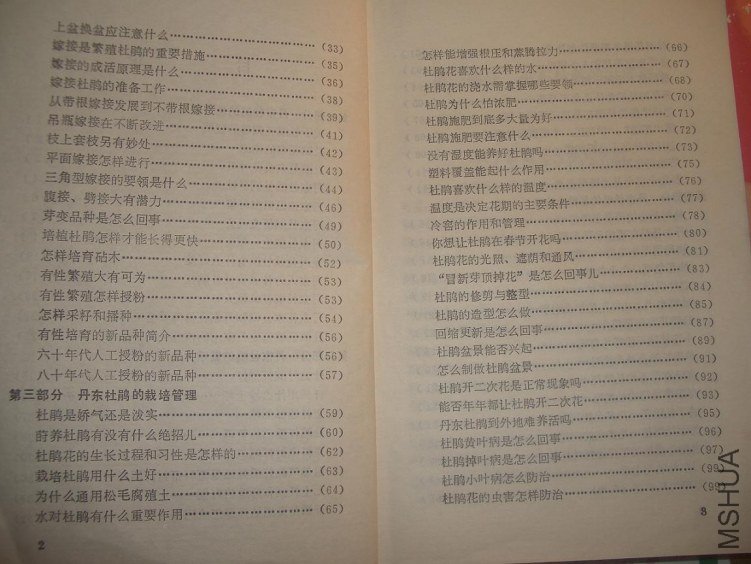 上盆换盆应注意什么……………………(33)
嫁接是繁殖杜鹃的重要措施……………………(35)
嫁接的成活原理是什么……………………(36)
嫁接杜鹃的准备工作……………………(38)
从带根嫁接发展到不带根嫁接……………………(39)
吊瓶嫁接在不断改进……………………(41)
枝上套枝另有妙处……………………(42)
平面嫁接怎样进行……………………(43)
三角型嫁接的要领是什么……………………(44)
腹接、劈接大有潜力……………………(46)
芽变品种是怎么回事……………………(49)
培植杜鹃怎样才能长得更快……………………(50)
怎样培育砧木……………………(52)
有性繁殖大有可为……………………(53)
有性繁殖怎样授粉……………………(53)
怎样采籽和播种……………………(54)
有性培育的新品种简介……………………(56)
六十年代人工授粉的新品种……………………(56)
八十年代人工授粉的新品种……………………(57)
第三部分 丹东杜鹃的栽培管理
杜鹃是娇气还是泼实……………………(59)
莳养杜鹃有没有什么绝招儿……………………(60)
杜鹃花的生长过程和习性是怎样的……………………(62)
栽培杜鹃用什么土好……………………(63)
为什么通用松毛腐殖土……………………(64)
水对杜鹃有什么重要作用……………………(65)
2
怎样能增强根压和蒸腾拉力……………………(66)
杜鹃花喜欢什么样的水……………………(67)
杜鹃花的浇水需掌握哪些要领……………………(68)
杜鹃为什么怕浓肥……………………(70)
杜鹃施肥到底多大量为好……………………(71)
杜鹃施肥要注意什么……………………(72)
没有湿度能养好杜鹃吗……………………(73)
塑料覆盖能起什么作用……………………(75)
杜鹃喜欢什么样的温度……………………(76)
温度是决定花期的主要条件……………………(77)
冷窖的作用和管理……………………(78)
你想让杜鹃在春节开花吗……………………(80)
杜鹃花的光照、遮荫和通风……………………(81)
“冒新芽顶掉花”是怎么回事儿……………………(83)
杜鹃的修剪与整型……………………(84)
杜鹃的造型怎么做……………………(85)
回缩更新是怎么回事……………………(87)
杜鹃盆景能否兴起……………………(89)
怎么制做杜鹃盆景……………………(91)
杜鹃开二次花是正常现象吗……………………(92)
能否年年都让杜鹃开二次花……………………(93)
丹东杜鹃到外地难养活吗……………………(95)
杜鹃黄叶病是怎么回事……………………(96)
杜鹃掉叶病是怎么回事……………………(97)
杜鹃小叶病怎么防治……………………(98)
杜鹃花的虫害怎样防治……………………(98)
3
MSHUA